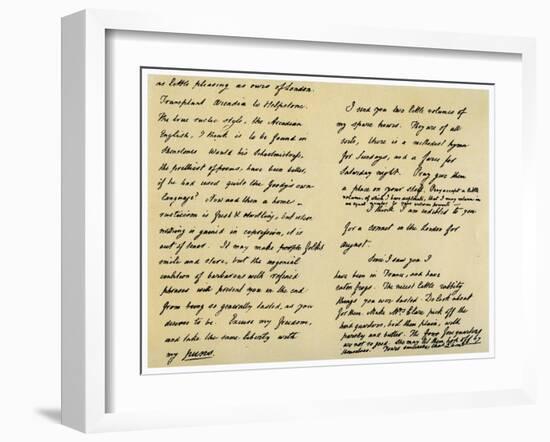 as little pleasing as ours of London.
Transplant Arcadia to Helpstone.
The true rustic style, the Arcadian
English, I think is to be found in
Shenstones. Would his Schoolmistress,
the prettiest of poems, have been better,
if he had used quite the Goody's own
language? Now and then a home-
rusticism is fresh & startling, but where
nothing is gained in expression, it is
out of tenor. It may make people folks
smile and stare, but the ungenial
coalition of barbarous with refined
phrases will prevent you in the end
from being so generally tasted, as you
deserve to be. Excuse my freedom,
and take the same liberty with
my puns.
I send you two little volumes of
my spare hours. They are of all
sorts, there is a methodist hymn
for Sundays, and a farce for
Saturday night. Pray give them
a place on your shelf. Pray accept a little
volume, of which I have duplicate, that I may return in
an equal number to your welcome presents—
I think I am indebted to you
for a sonnet in the London for
August.
Since I saw you I
have been in France, and have
eaten frogs. The nicest little rabbity
things you ever tasted. Do look about
for them. Make Mrs Clare pick off the
hind quarters, boil them plain, with
parsley and butter. The fore quarters
are not so good. She may let them hop off by
themselves. Yours sincerely, Chas Lamb